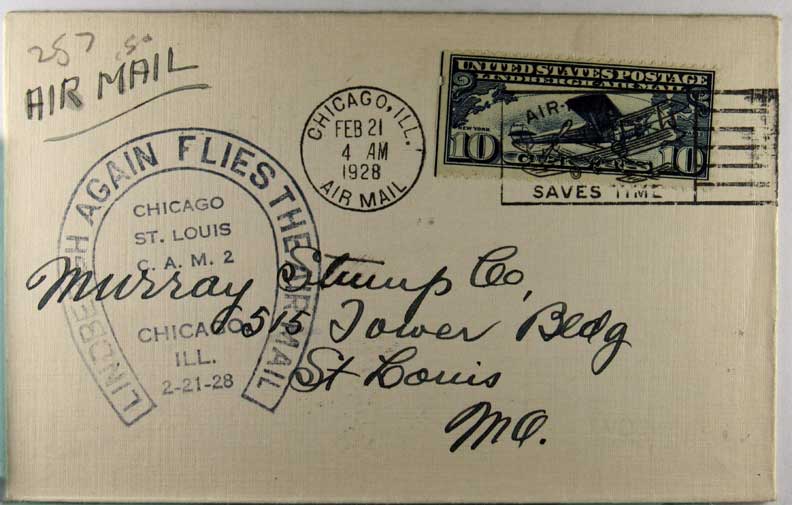 257 .50
AIR MAIL
CHICAGO, ILL.
FEB 21
4 AM
1928
AIR MAIL
UNITED STATES POSTAGE
LINDBERGH AIR MAIL
NEW YORK
10 CENTS 10
AIR
SAVES TIME
LINDBERGH AGAIN FLIES THE AIR MAIL
CHICAGO
ST. LOUIS
C. A. M. 2
CHICAGO
ILL.
2-21-28
Murray Stump Co,
515 Tower Bldg
St Louis
MO.